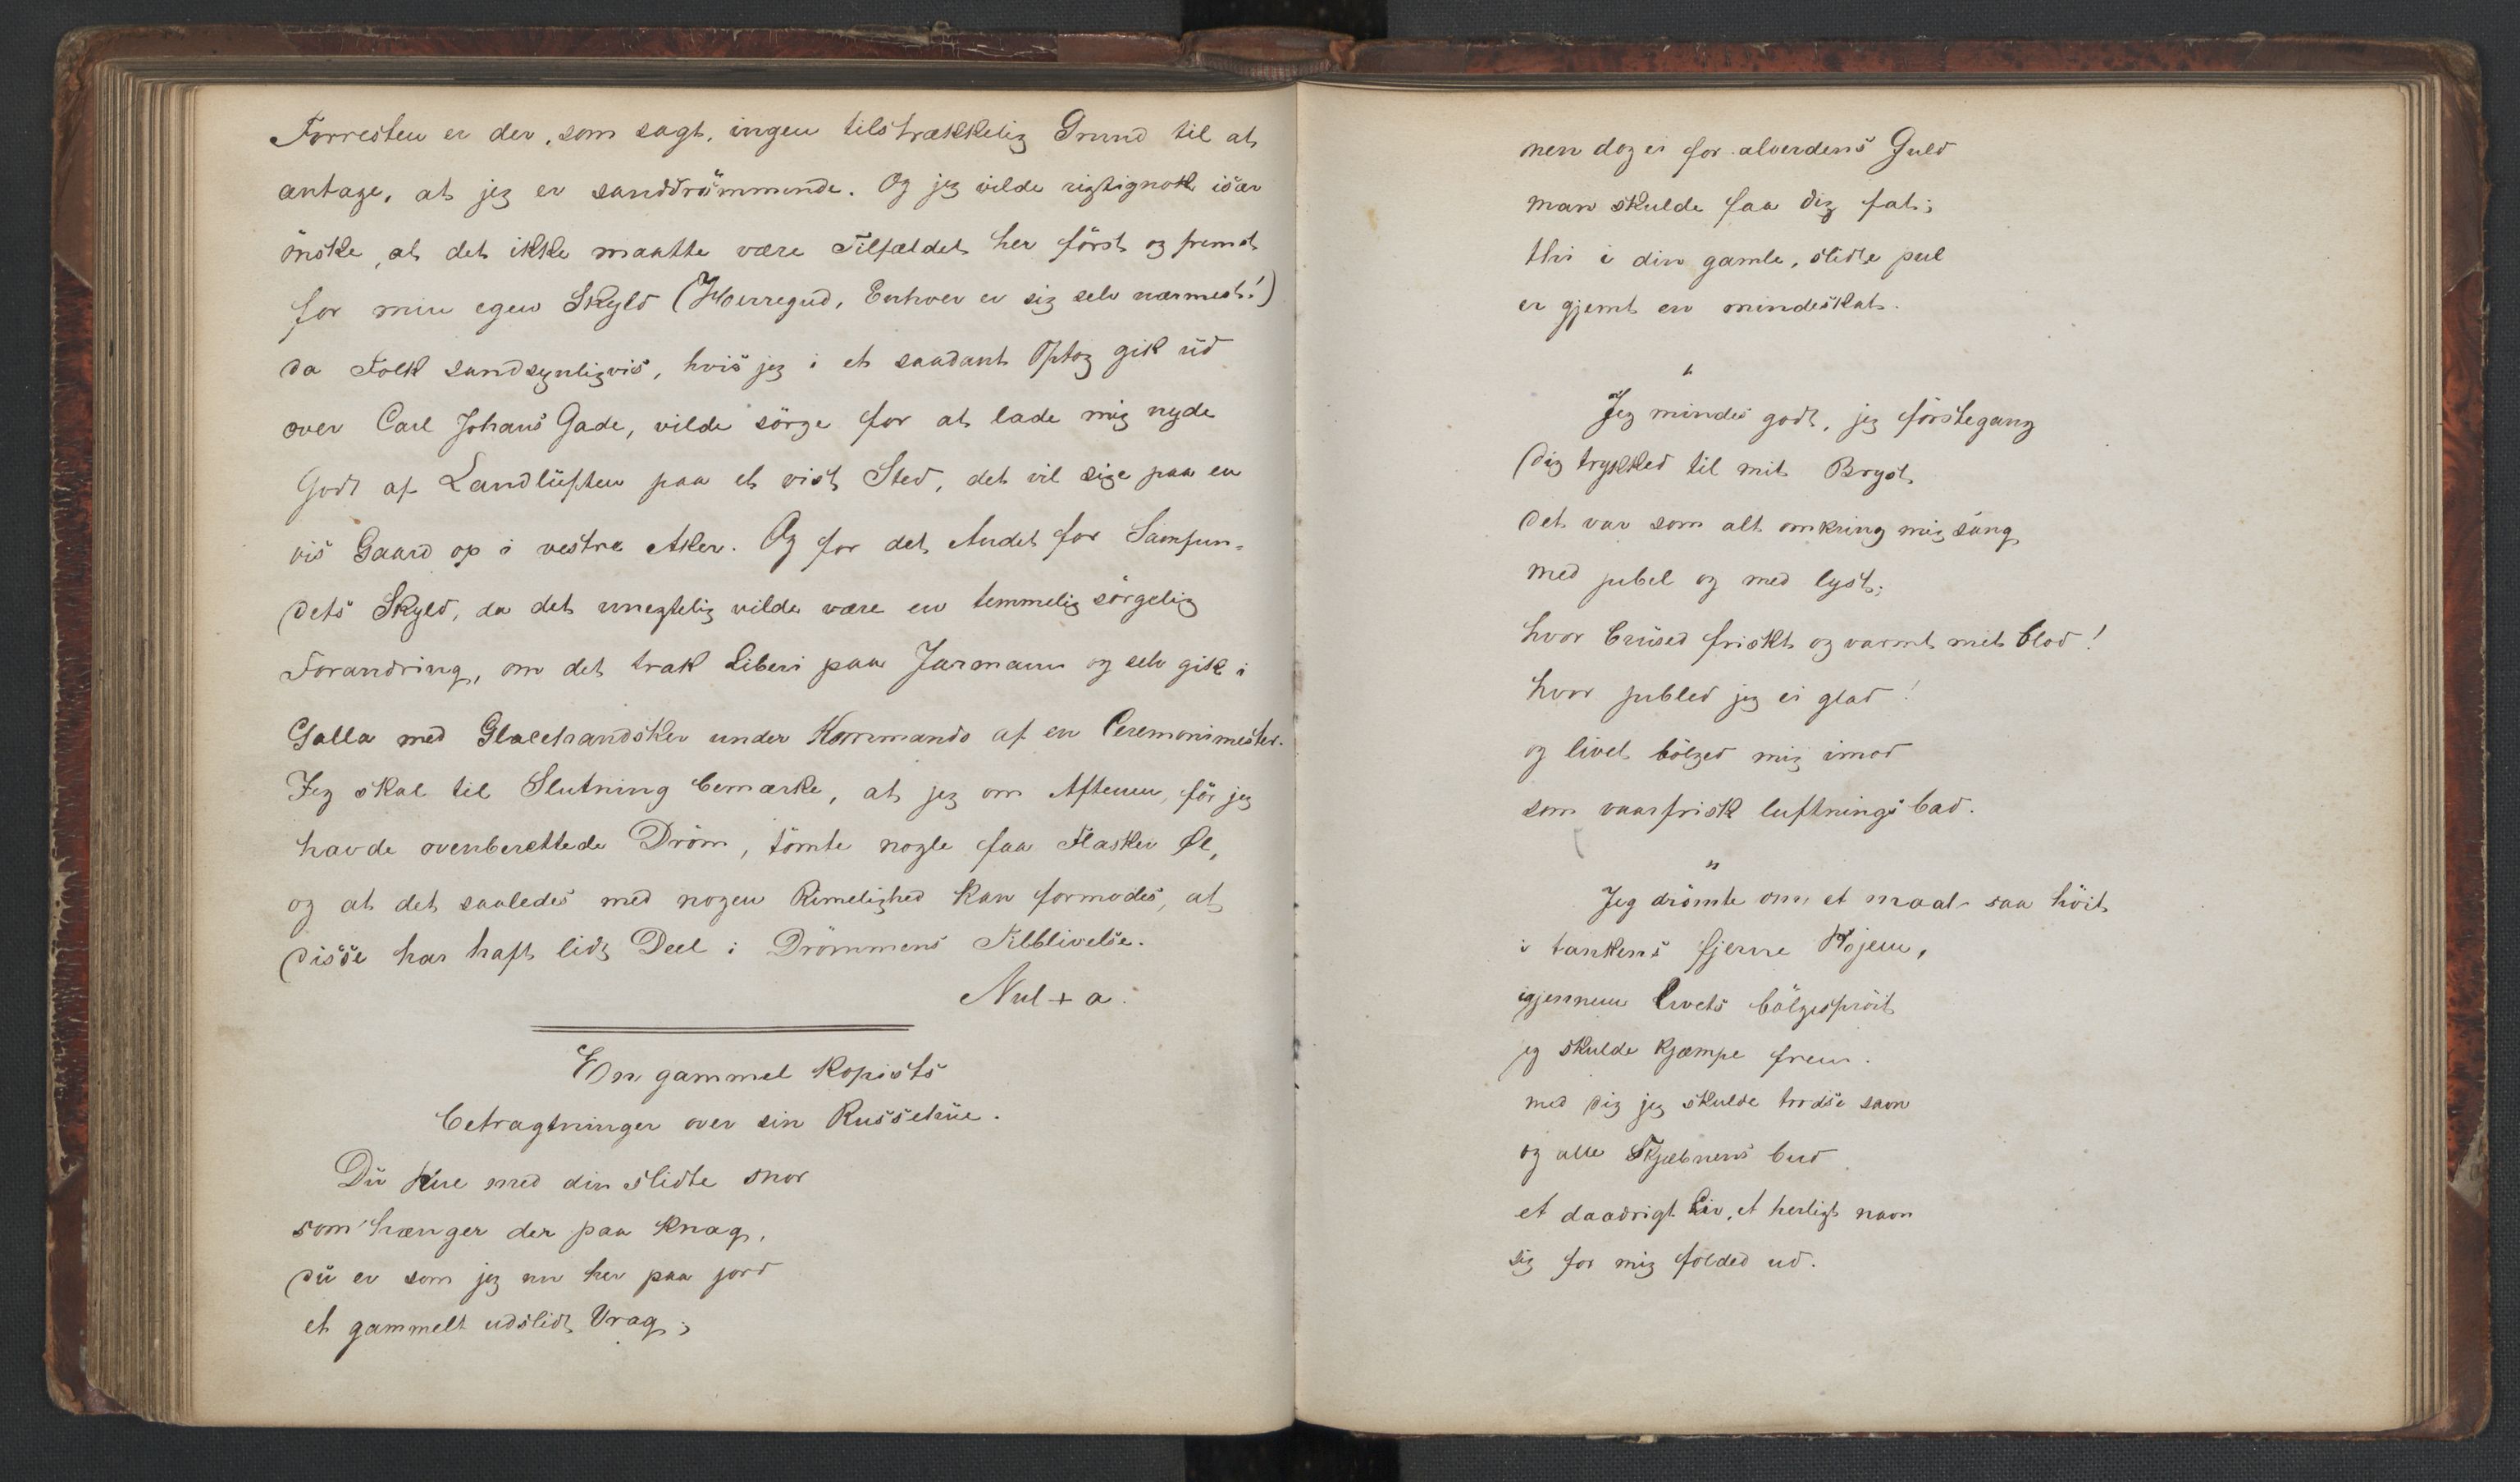 Forresten er der, som sagt, ingen tilstrækkelig Grund til at
antage, at jeg er sanddrömmende. Og jeg vilde rigtignok især
önske, at det ikke maatte være Tilfældet her först og fremst
for min egen Skyld (Herregud, Enhver er sig selv nærmest!)
da Folk sandsynligvis, hvis jeg i et saadant Optog gik ud
over Carl Johans Gade, vilde sörge for at lade mig nyde
Godt af Landluften paa et vist Sted, det vil sige paa en
vis Gaard op i vestre Aker. Og for det Andet for Samfun-
dets Skyld, da det unegtelig vilde være en temmelig sörgelig
Forandring, om det trak Liberi paa Jarmann og selv gik i
Galla med Glacehandsker under Kommando af en Ceremonimester.
Jeg skal til Slutning bemærke, at jeg om Aftenen, för jeg
havde ovenberettede Dröm, tömte nogle faa Flasker Øl,
og at det saaledes med nogen Rimelighed kan formodes, at
disse har haft lidt Deel i Drömmens Tilblivelse.
Nul + a.
En gammel Kopists
betragtninger over sin Russehue.
Du hue med din slidte snor
som hænger der paa knag,
du er som jeg nu her paa jord
et gammelt udslidt Vrag;
men dog ei for alverdens Guld
man skulde faa dig fat;
thi i din gamle, slidte pul
er gjemt en mindeskat.
"
Jeg mindes godt, jeg förstegang
dig trykked til mit Bryst,
det var som alt omkring mig sang
med jubel og med lyst;
hvor brused friskt og varmt mit blod!
hvor jubled jeg ei glad!
og livet bölged mig imod
som vaarfrisk luftningsbad.
"
Jeg drömte om et maal saa höit
i tankens fjerne Hjem,
igjennem Livets bölgespröit
jeg skulde kjæmpe frem.
med dig jeg skulde trodse savn
og alle Skjæbnens bud
et daadrigt Liv, et herligt navn
sig for mig folded ud.